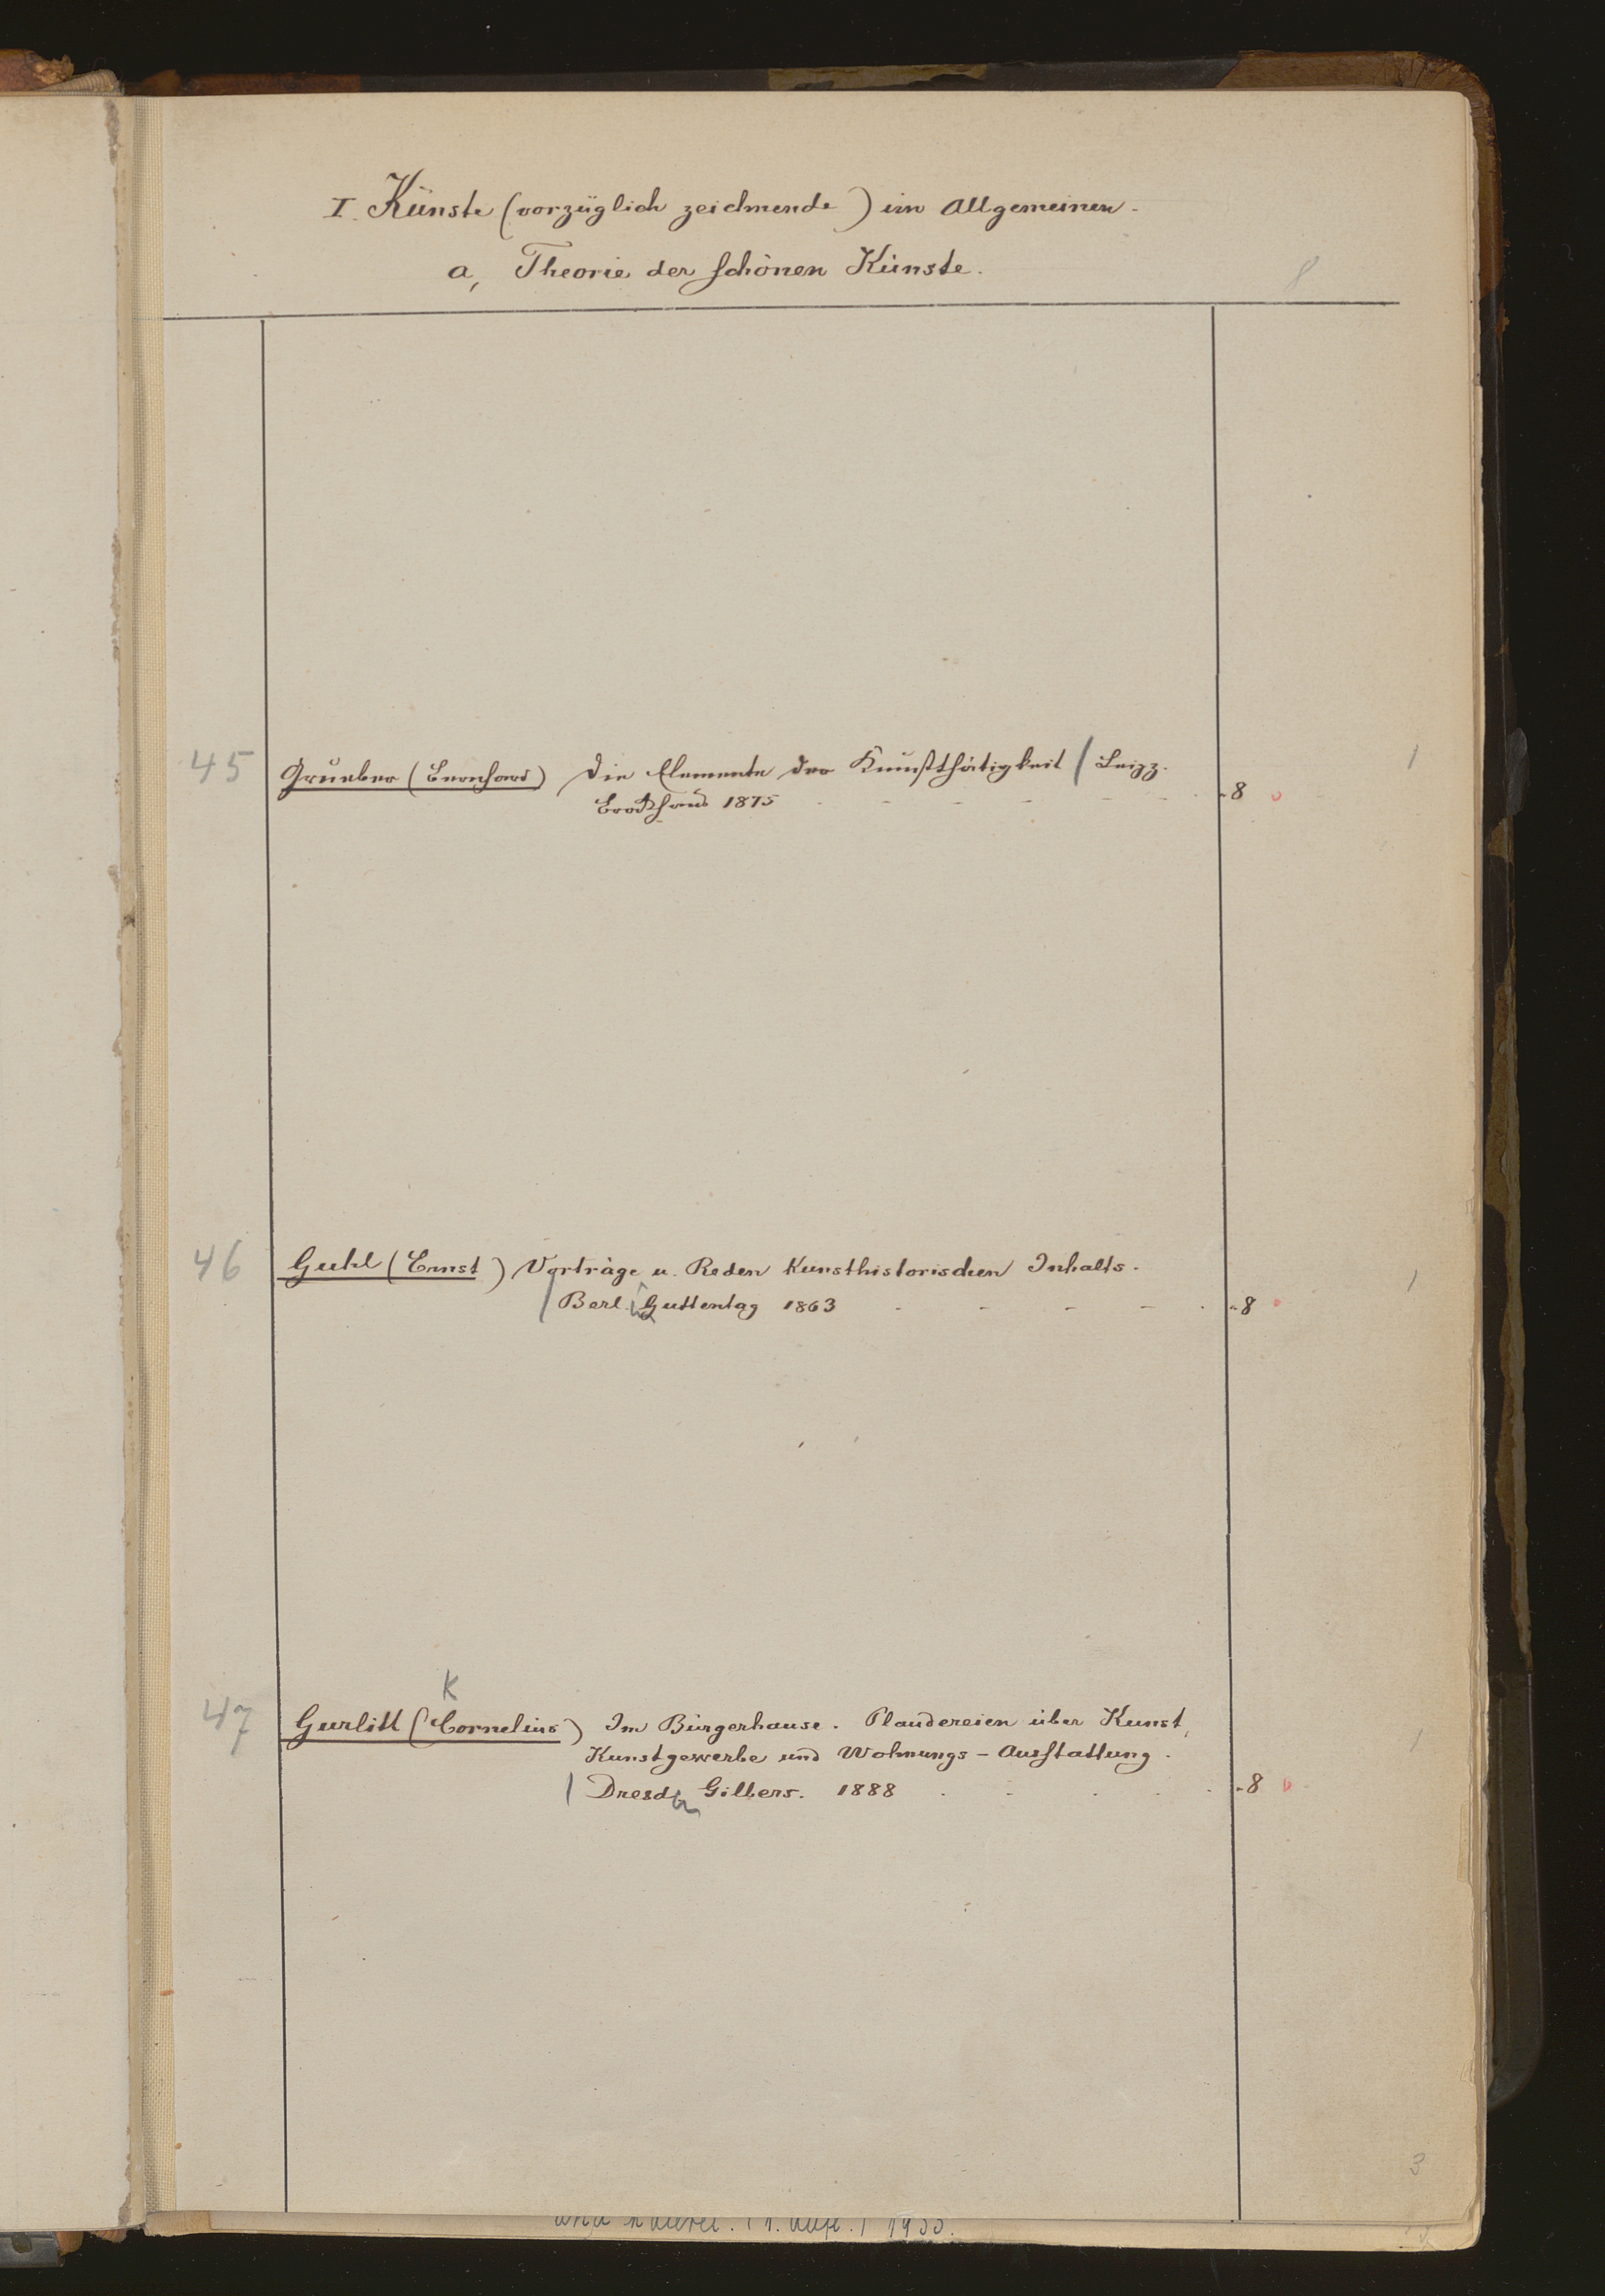 I. Künste (vorzüglich zeichnende) im Allgemeinen.
a, Theorie der schönen Künste.
8
45 Grueber (Bernhard) Die Elemente der Kunstthätigkeit / Leipz. 1
Brockhaus 1875 - - - - - - 8 o
46 Guhl (Ernst) Vorträge u. Reden Kunsthistorischen Inhalts. 1
/ Berl. Guttentag 1863 - - - - - 8 o
K
47 Gurlitt (Cornelius) Im Bürgerhause. Plaudereien über Kunst, 1
Kunstgewerbe und Wohnungs-Ausstattung.
/ Dresd. Gilbers. 1888 . . . . . 8 o
3